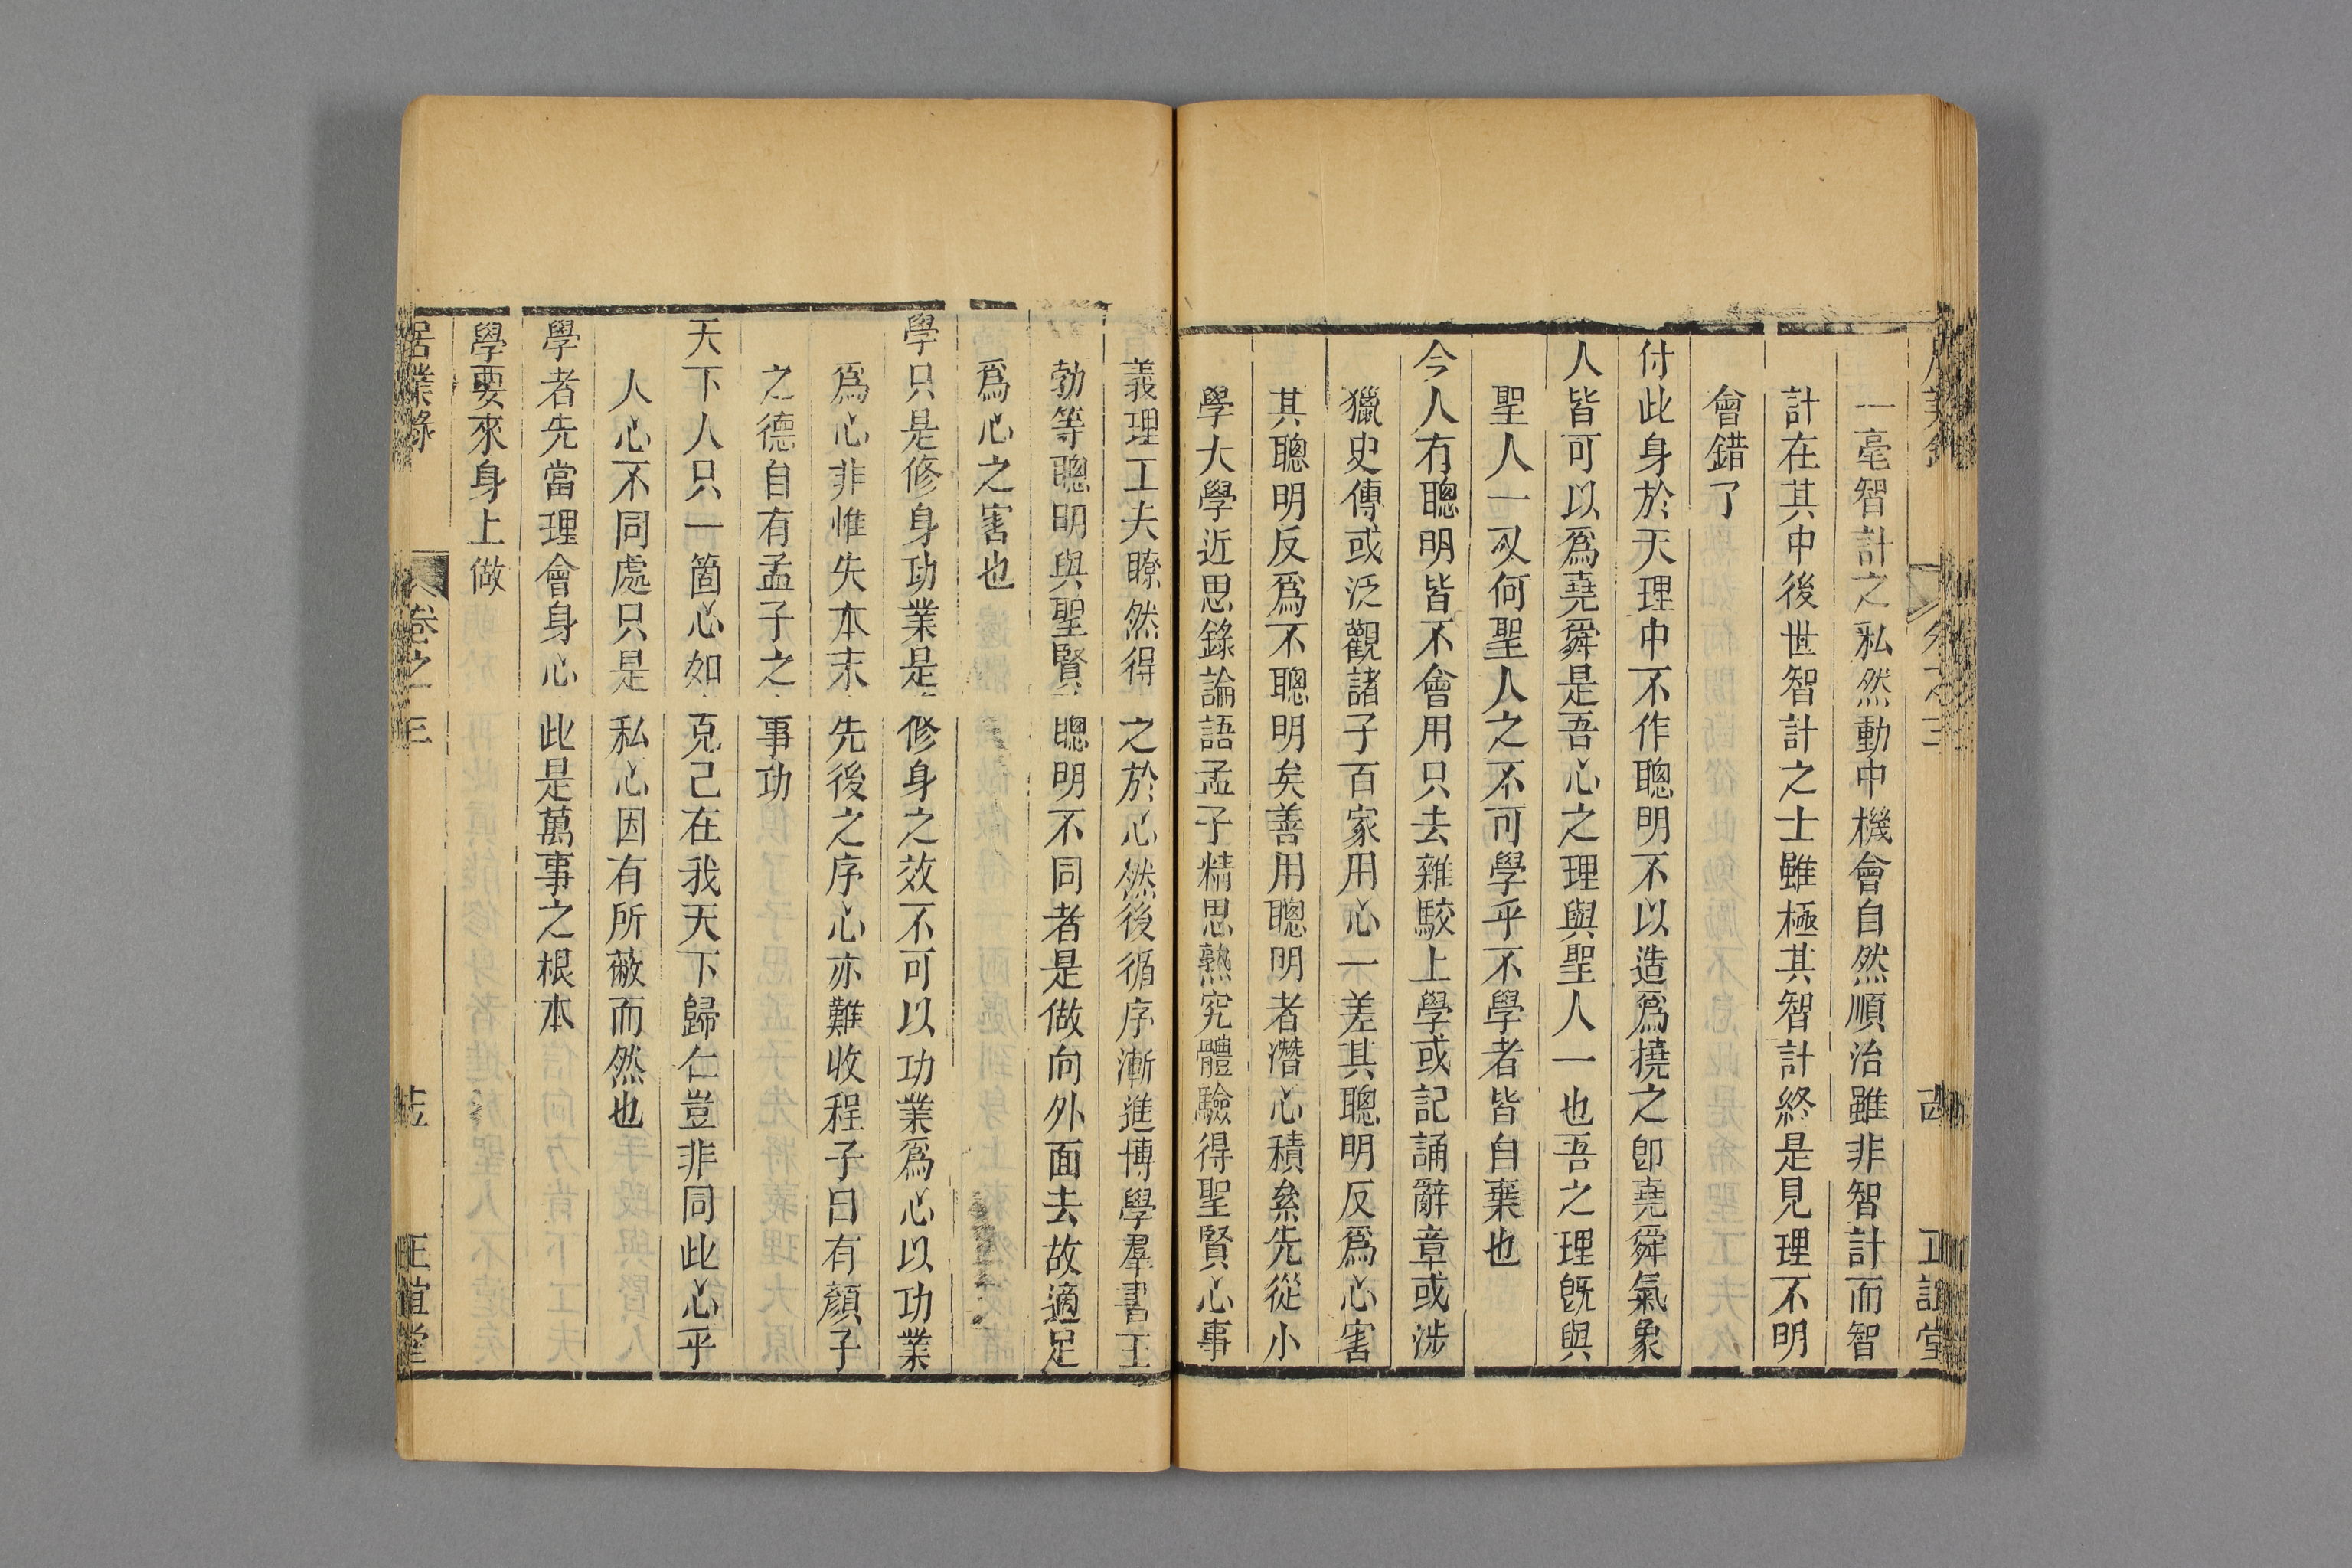 一毫智計之私然動中機會自然順治雖非智計而智
計在其中後世智計之士雖極其智計終是見理不明
會錯了
付此身於天理中不作聰明不以造爲撓之卽堯舜氣象
人皆可以爲堯舜是吾心之理與聖人一也吾之理旣與
聖人一又何聖人之不可學乎不學者皆自棄也
今人有聰明皆不會用只去雜駁上學或記誦辭章或涉
獵史傳或泛觀諸子百家用心一差其聰明反爲心害
其聰明反爲不聰明矣善用聰明者潛心積絫先從小
學大學近思錄論語孟子精思熟究體驗得聖賢心事
義理工夫瞭然得之於心然後循序漸進博學羣書王
勃等聰明與聖賢聰明不同者是做向外面去故適足
爲心之害也
學只是修身功業是修身之效不可以功業爲心以功業
爲心非惟失本末先後之序心亦難收程子曰有顏子
之德自有孟子之事功
天下人只一箇心如克己在我天下歸仁豈非同此心乎
人心不同處只是私心因有所蔽而然也
學者先當理會身心此是萬事之根本
學要來身上做
居業錄 卷之三 正誼堂